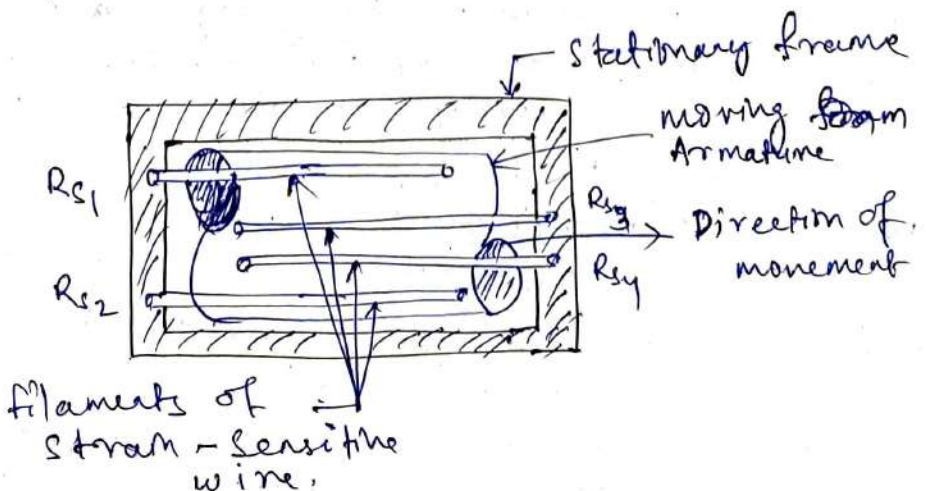 stationary frame
moving
Armature
Rs1
Rs3
Direction of
movement
Rs4
Rs2
filaments of
strain - sensitive
wire.